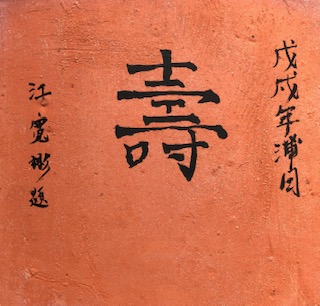 戊戌年浦月
壽
江寬彬題